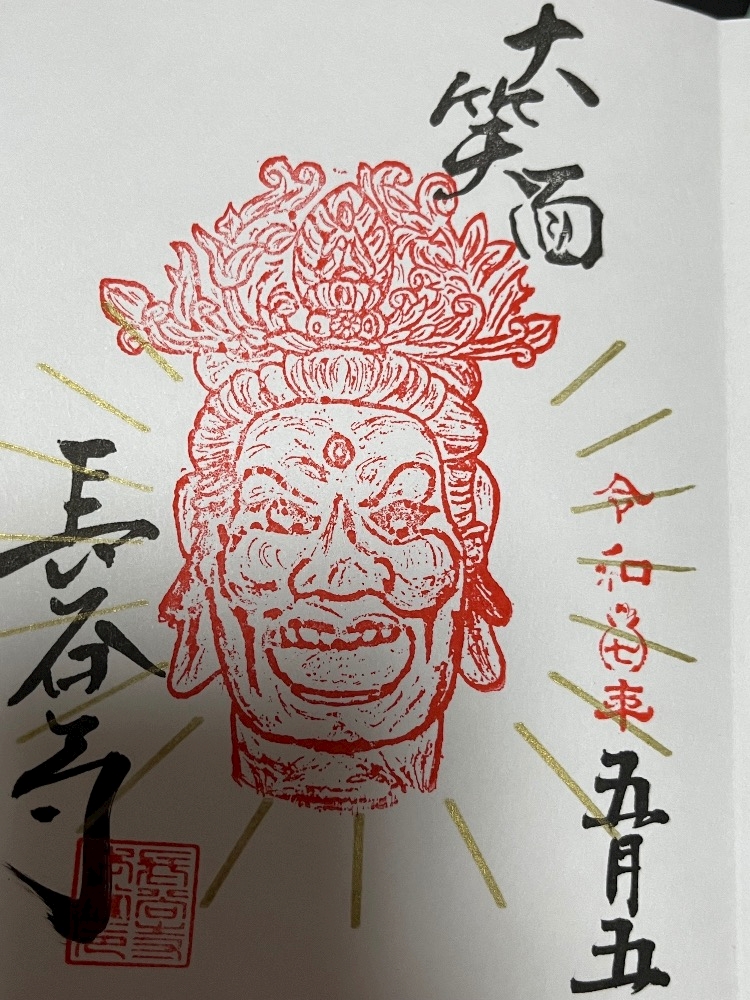 大笑面
令和七年五月五
長谷寺